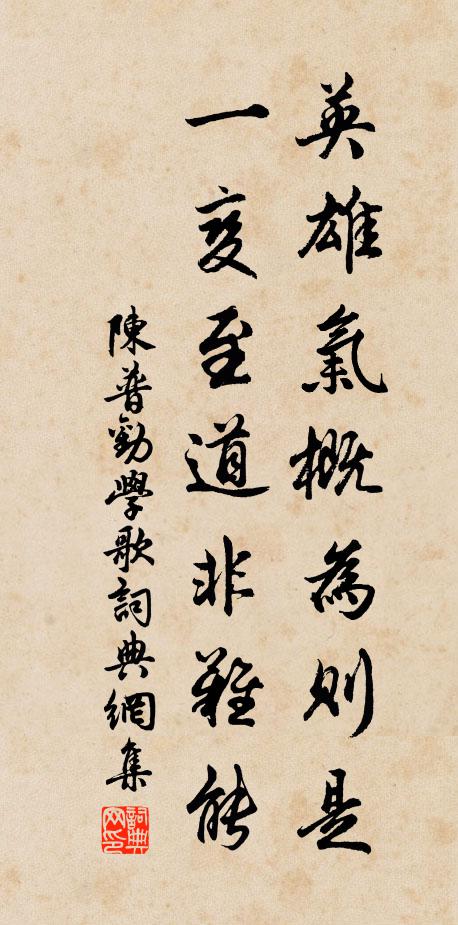 英雄氣概為則是
一變至道非難能
陳普勸學歌詞典網集
詞典網印